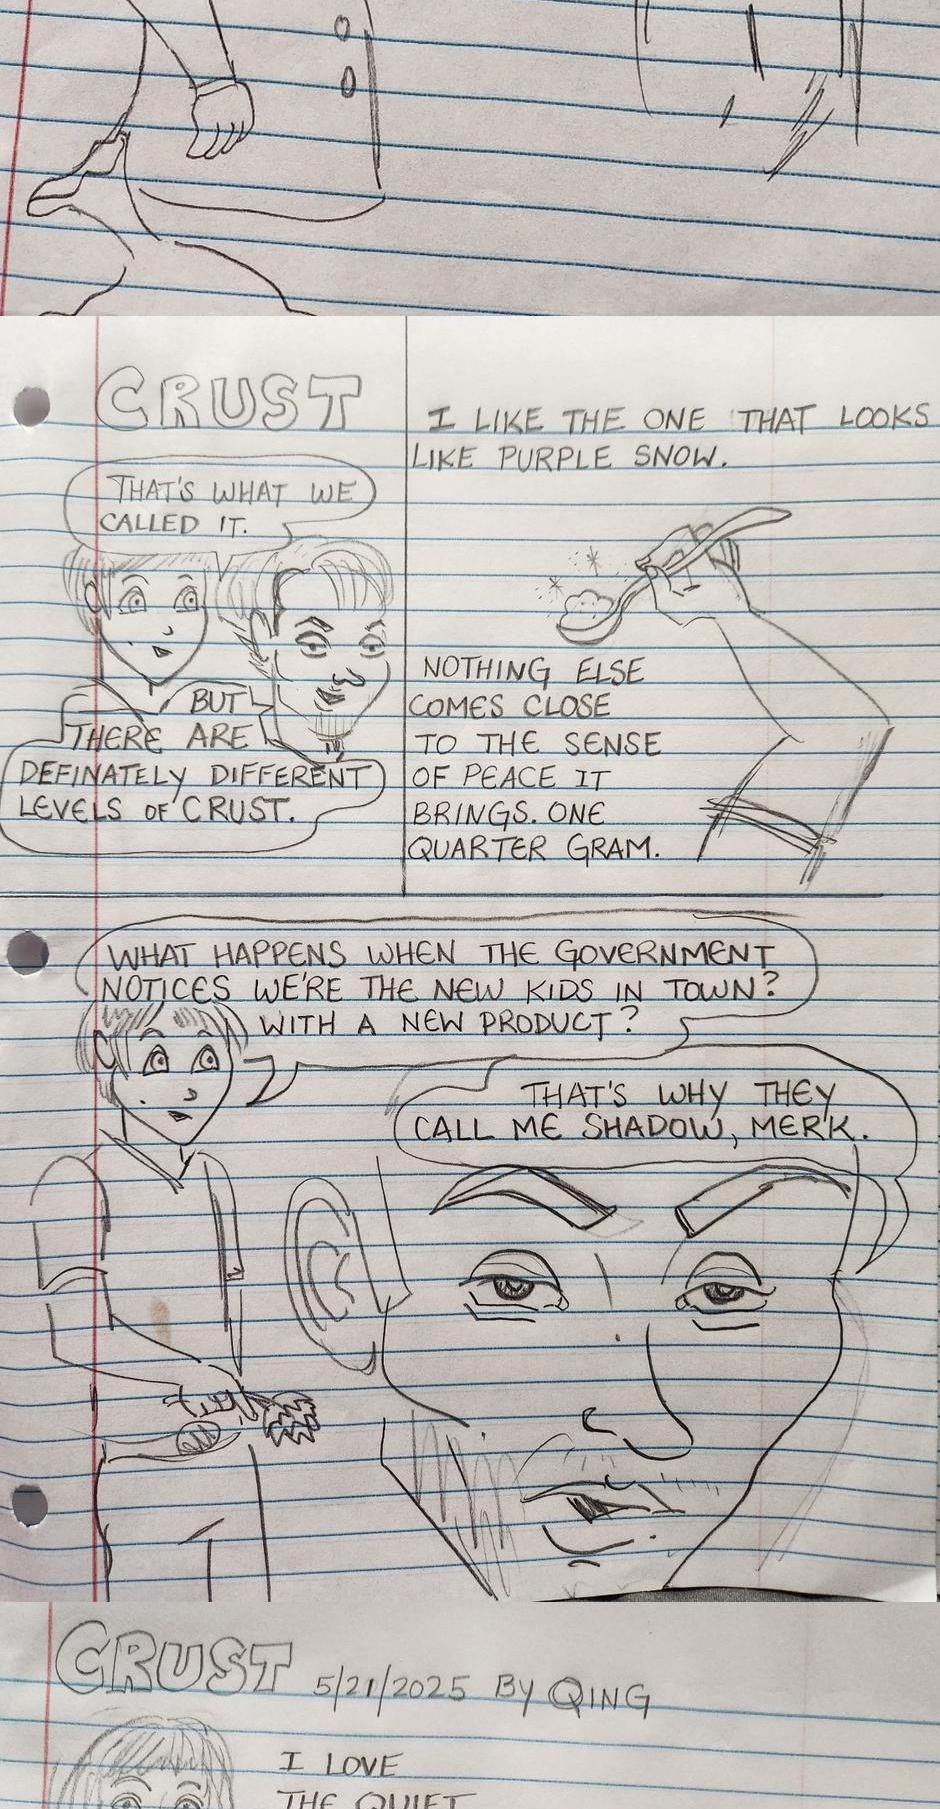 CRUST
THAT'S WHAT WE
CALLED IT.
BUT
THERE ARE
DEFINATELY DIFFERENT
LEVELS OF CRUST.
I LIKE THE ONE THAT LOOKS
LIKE PURPLE SNOW.
NOTHING ELSE
COMES CLOSE
TO THE SENSE
OF PEACE IT
BRINGS. ONE
QUARTER GRAM.
WHAT HAPPENS WHEN THE GOVERNMENT
NOTICES WE'RE THE NEW KIDS IN TOWN?
WITH A NEW PRODUCT?
THAT'S WHY THEY
CALL ME SHADOW, MERK.
CRUST 5/21/2025 BY QING
I LOVE
THE QUIET